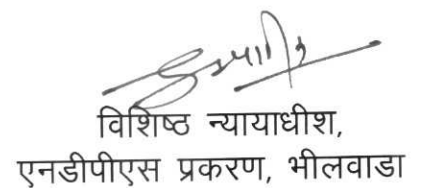 विशिष्ठ न्यायाधीश,
एनडीपीएस प्रकरण, भीलवाडा